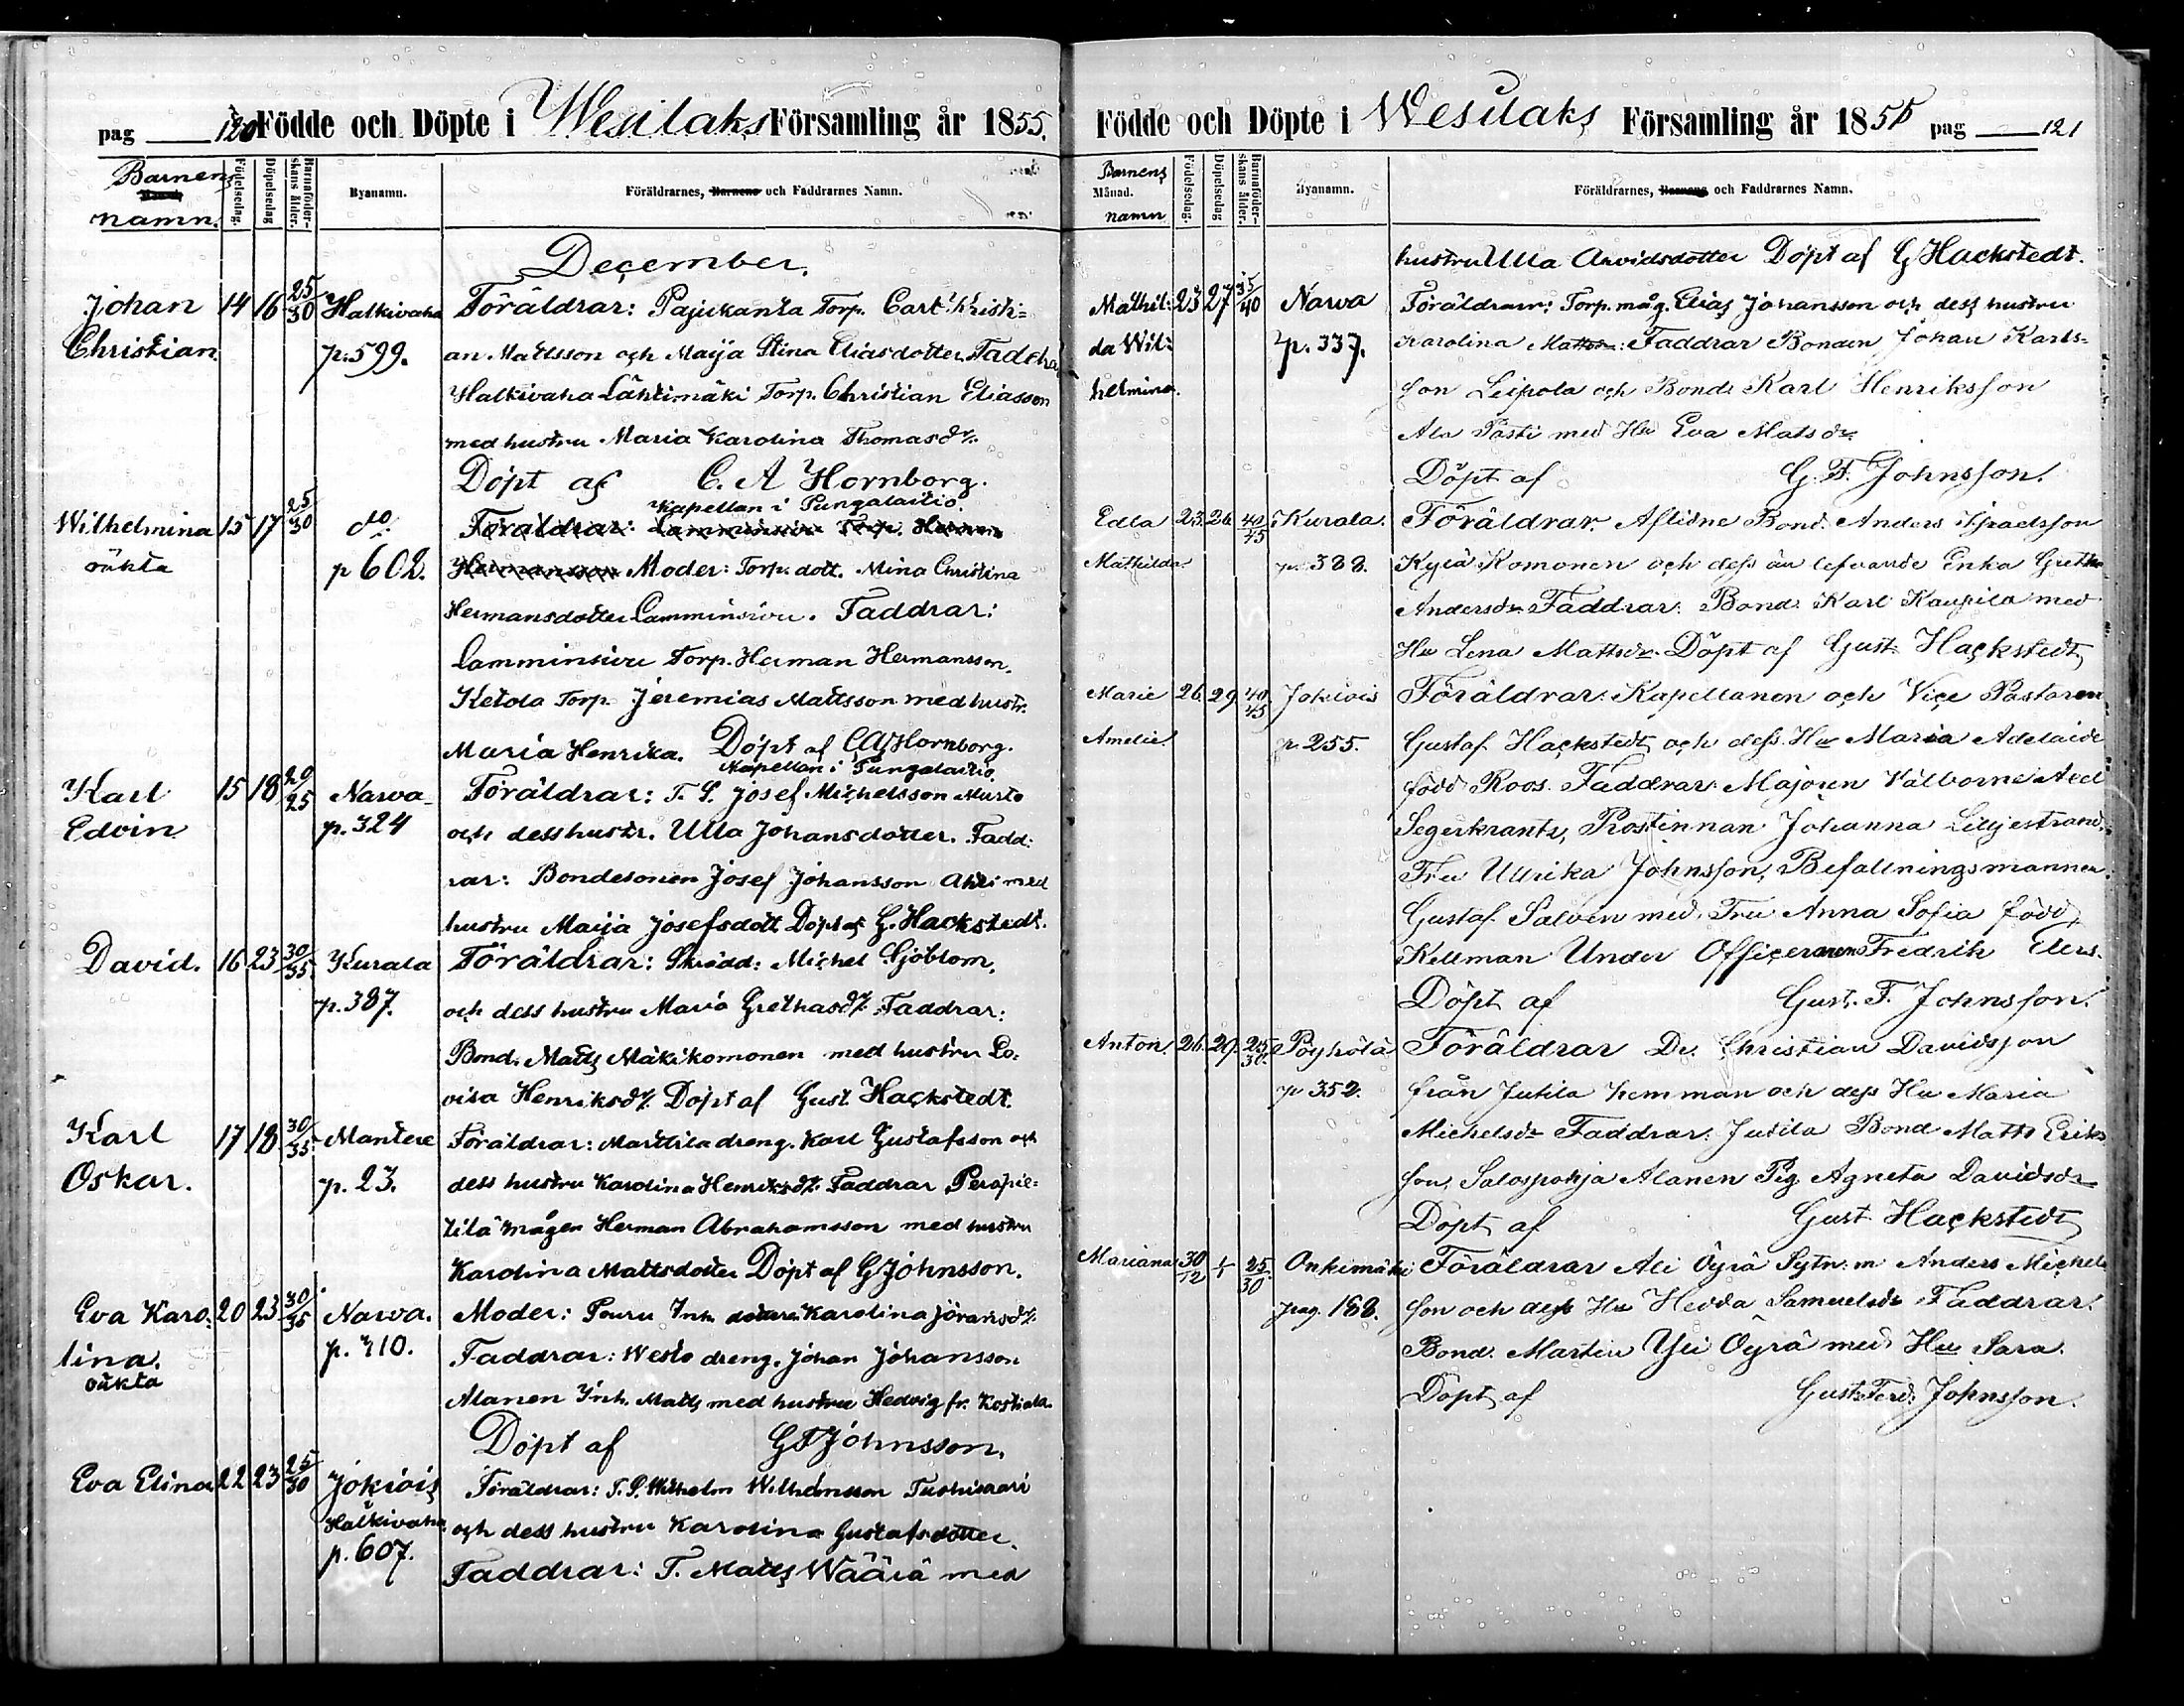 pag 120 Födde och Döpte i Wesilaks Församling år 1855.
Barnens namn. Födelsedag. Döpelsedag Barnaföderskans ålder. Byanamn. Föräldrarnes, Barnens och Faddrarnes Namn.
December.
Johan 14 16 25/30 Halkivaha Föräldrar: Pajukanta Torp. Carl Kristi=
Christian. p. 599. an Mattsson och Maija Stina Eliasdotter. Faddrar
Halkivaha Lähtimäki Torp. Christian Eliasson
med hustru Maria Karolina Thomasdr.
Döpt af C. A Hornborg.
Kapellan i Pungalaitio.
Wilhelmina 15 17 25/30 do Föräldrar: Lamminsivu Torp. Herman
oäkta p 602. Hermansson Moder: Torp. dott. Mina Christina
Hermansdotter Lamminsivu. Faddrar:
Lamminsivu Torp. Herman Hermansson,
Ketola Torp. Jeremias Mattsson med hustr.
Maria Henrika. Döpt af CAHornborg.
Kapellan i Pungalaitio.
Karl 15 18 20/25 Narva Föräldrar: T. P. Josef Michelsson Murto
Edvin. p. 324 och dess hustr. Ulla Johansdotter. Fadd:
rar: Bondesonen Josef Johansson Ahti med
hustru Maija Josefsdott Döpt af G. Hackstedt.
David. 16 23 30/35 Kurala Föräldrar: Skrädd: Michel Sjöblom,
p. 387. och dess hustru Maria Grethasdr. Faddrar:
Bond. Matts Mäkikomonen med hustru Lo:
visa Henriksdr. Döpt af Gust. Hackstedt.
Karl 17 18 30/35 Mantere Föräldrar: Marttila dreng. Karl Gustafsson och
Oskar. p. 23. dess hustru Karolina Henriksdr. Faddrar Peräpie=
tilä mågen Herman Abrahamsson med hustru
Karolina Mattsdotter Döpt af GJohnsson.
Eva Karo: 20 23 30/35 Narva. Moder: Pouru Inh. Karolina Jöransdr.
lina. p. 310. Faddrar: Westo dreng. Johan Johansson
oäkta
Alanen Inh. Matts med hustru Hedvig fr. Kostiala.
Döpt af GFJohnsson.
Eva Elina 22 23 25/30 Jokiois Föräldrar: T. P. Wilhelm Wilhelmsson Tuohisaari
Halkivaha och dess hustru Karolina Gustafsdotter.
p. 607. Faddrar: T. Matts Wäärä med
Födde och Döpte i Wesilaks Församling år 1855 pag 121
Barnens Månad. namn Födelsedag. Döpelsedag Barnaföderskans ålder. Byanamn. Föräldrarnes, Barnens och Faddrarnes Namn.
hustru Ulla Arvidsdotter Döpt af G Hackstedt.
Mathil: 23 27 35/40 Narva Föräldrar: Torp. måg. Elias Johansson och dess hustru
da Wil: p. 337. Karolina Matts: Faddrar Bonden Johan Karls=
helmina. son Leipola och Bond. Karl Henriksson
Ala Pästi med Hu Eva Matsdr.
Döpt af G. F. Johnsson.
Edla 23. 26 40/45 Kurala. Föräldrar. Aflidne Bond. Anders Israelsson
Mathilda. p. 388. Kyrä Komonen och dess än lefvande Enka Gretha
Andersdr. Faddrar. Bond. Karl Kaupila med
Hu Lena Mattsdr. Döpt af Gust. Hackstedt
Marie 26. 29 40/45 Jokiois Föräldrar. Kapellanen och Vice Pastoren
Amelie. p. 255. Gustaf Hackstedt och dess Hu Maria Adelaide
född Roos. Faddrar. Majoren Välborne Axel
Segerkrantz, Prostinnan Johanna Liljestrand,
Fru Ullrika Johnsson, Befallningsmannen
Gustaf Salvén med Fru Anna Sofia född
Kellman Under Officeraren Fredrik Elers.
Döpt af Gust. F. Johnsson.
Anton. 26. 29. 25/30. Pöyhölä Föräldrar Dr. Christian Davidsson
p 352. från Jutila hemman och dess Hu Maria
Michelsdr Faddrar. Jutila Bond Matts Eriks
son, Salospohja Alanen Pig. Agneta Davidsdr
Döpt af Gust Hackstedt
Mariana 30/12 1/1 25/30 Onkimäki Föräldrar Ali Öyrä Sytn: m Anders Michels
pag. 188. son och dess Hu Hedda Samuelsdr Faddrar.
Bond. Martin Yli Öyrä med Hu Sara.
Döpt af Gust. Ferd. Johnsson.